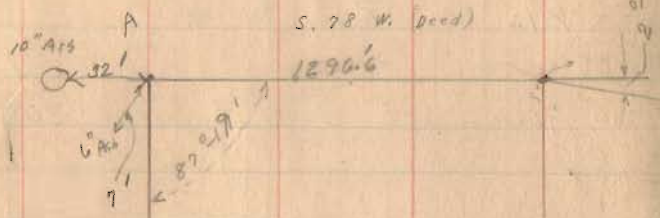 A
S. 78 W. (Deed)
10" Ash
32'
1290.6'
6" Ash
87°-19'
7'